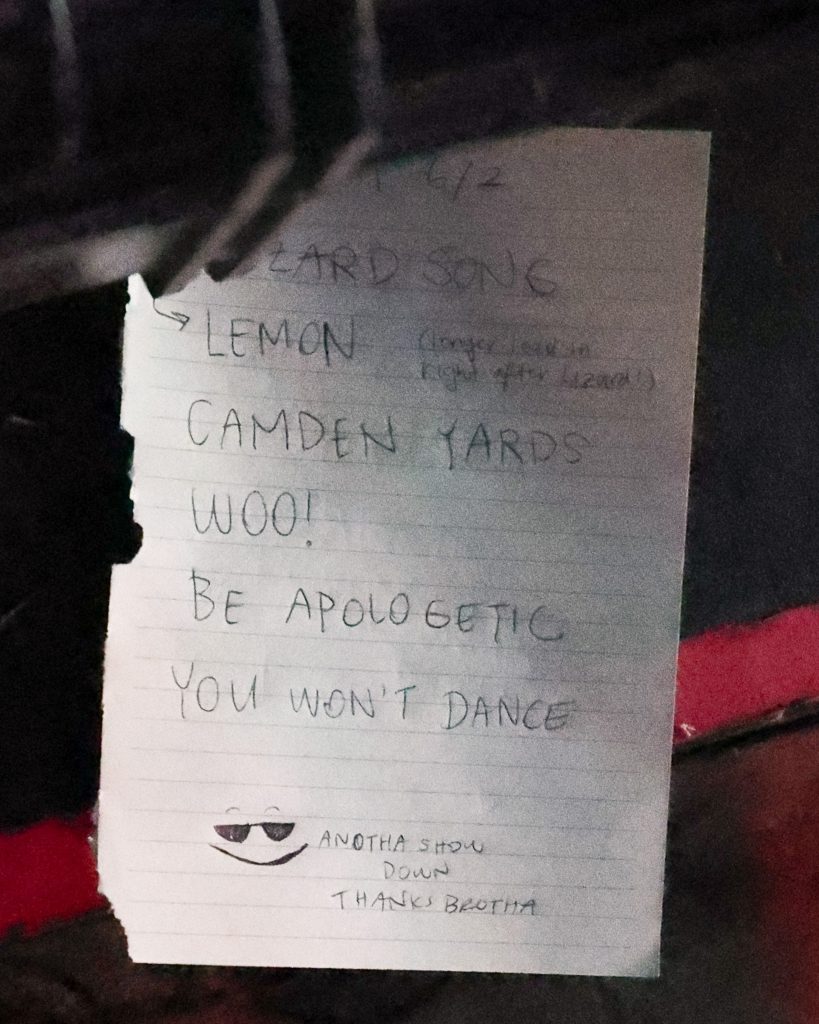 6/2
ZARD SONG
LEMON (longer lead in
right after Lizard!)
CAMDEN YARDS
WOO!
BE APOLOGETIC
YOU WON'T DANCE
ANOTHA SHOW
DOWN
THANKS BROTHA